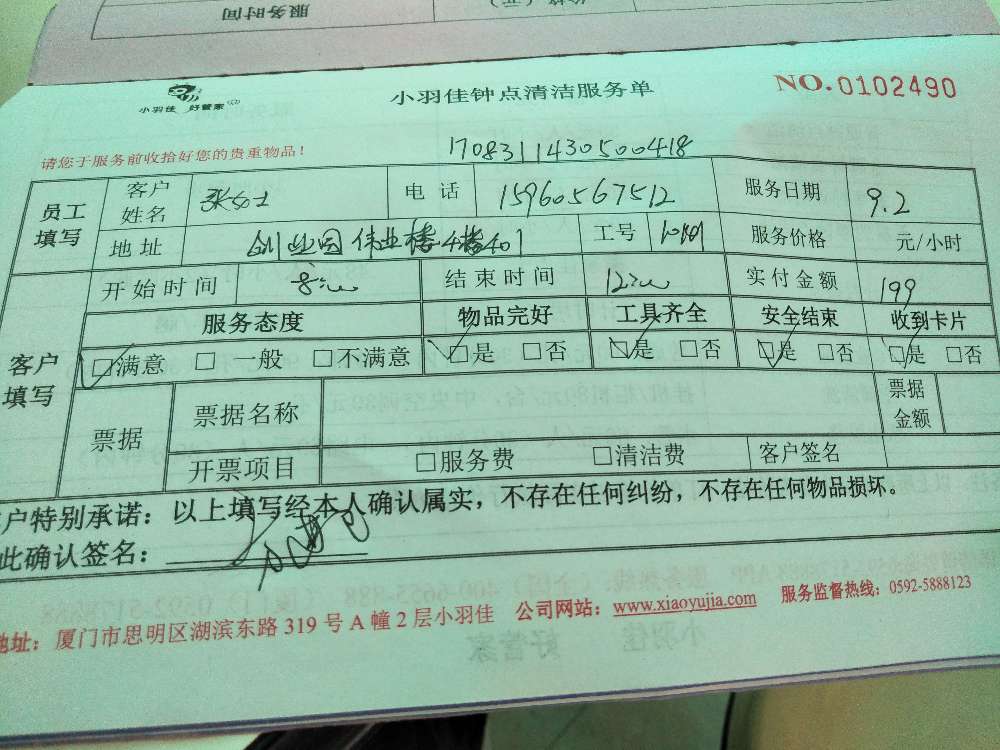 服务时间
小羽佳 好管家
小羽佳钟点清洁服务单
NO.0102490
请您于服务前收拾好您的贵重物品！
1708311430500418
员工填写 客户姓名 张女士 电话 15960567512 服务日期 9.2
地址 创业园伟业楼4楼401 工号 服务价格 元/小时
客户填写 开始时间 8:00 结束时间 12:00 实付金额 199
服务态度 物品完好 工具齐全 安全结束 收到卡片
☑满意 □一般 □不满意 ☑是 □否 ☑是 □否 ☑是 □否 ☑是 □否
票据 票据名称 票据金额
开票项目 □服务费 □清洁费 客户签名
户特别承诺：以上填写经本人确认属实，不存在任何纠纷，不存在任何物品损坏。
此确认签名：
地址：厦门市思明区湖滨东路319号A幢2层小羽佳 公司网站：www.xiaoyujia.com 服务监督热线：0592-5888123